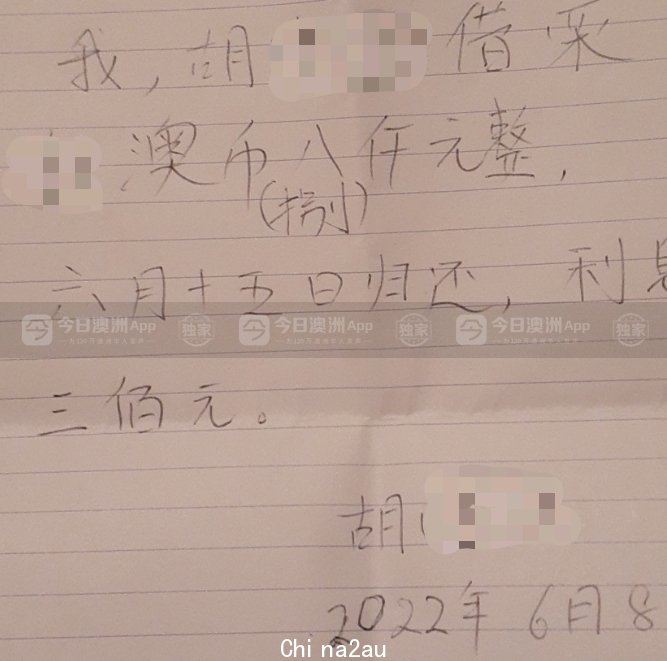 我,胡 借宋
澳币八仟元整,
(捌)
六月十五日归还,利息
今日澳洲App 独家 今日澳洲App 独家 今日澳洲App 独家
三佰元。
胡
2022年6月8
China2au